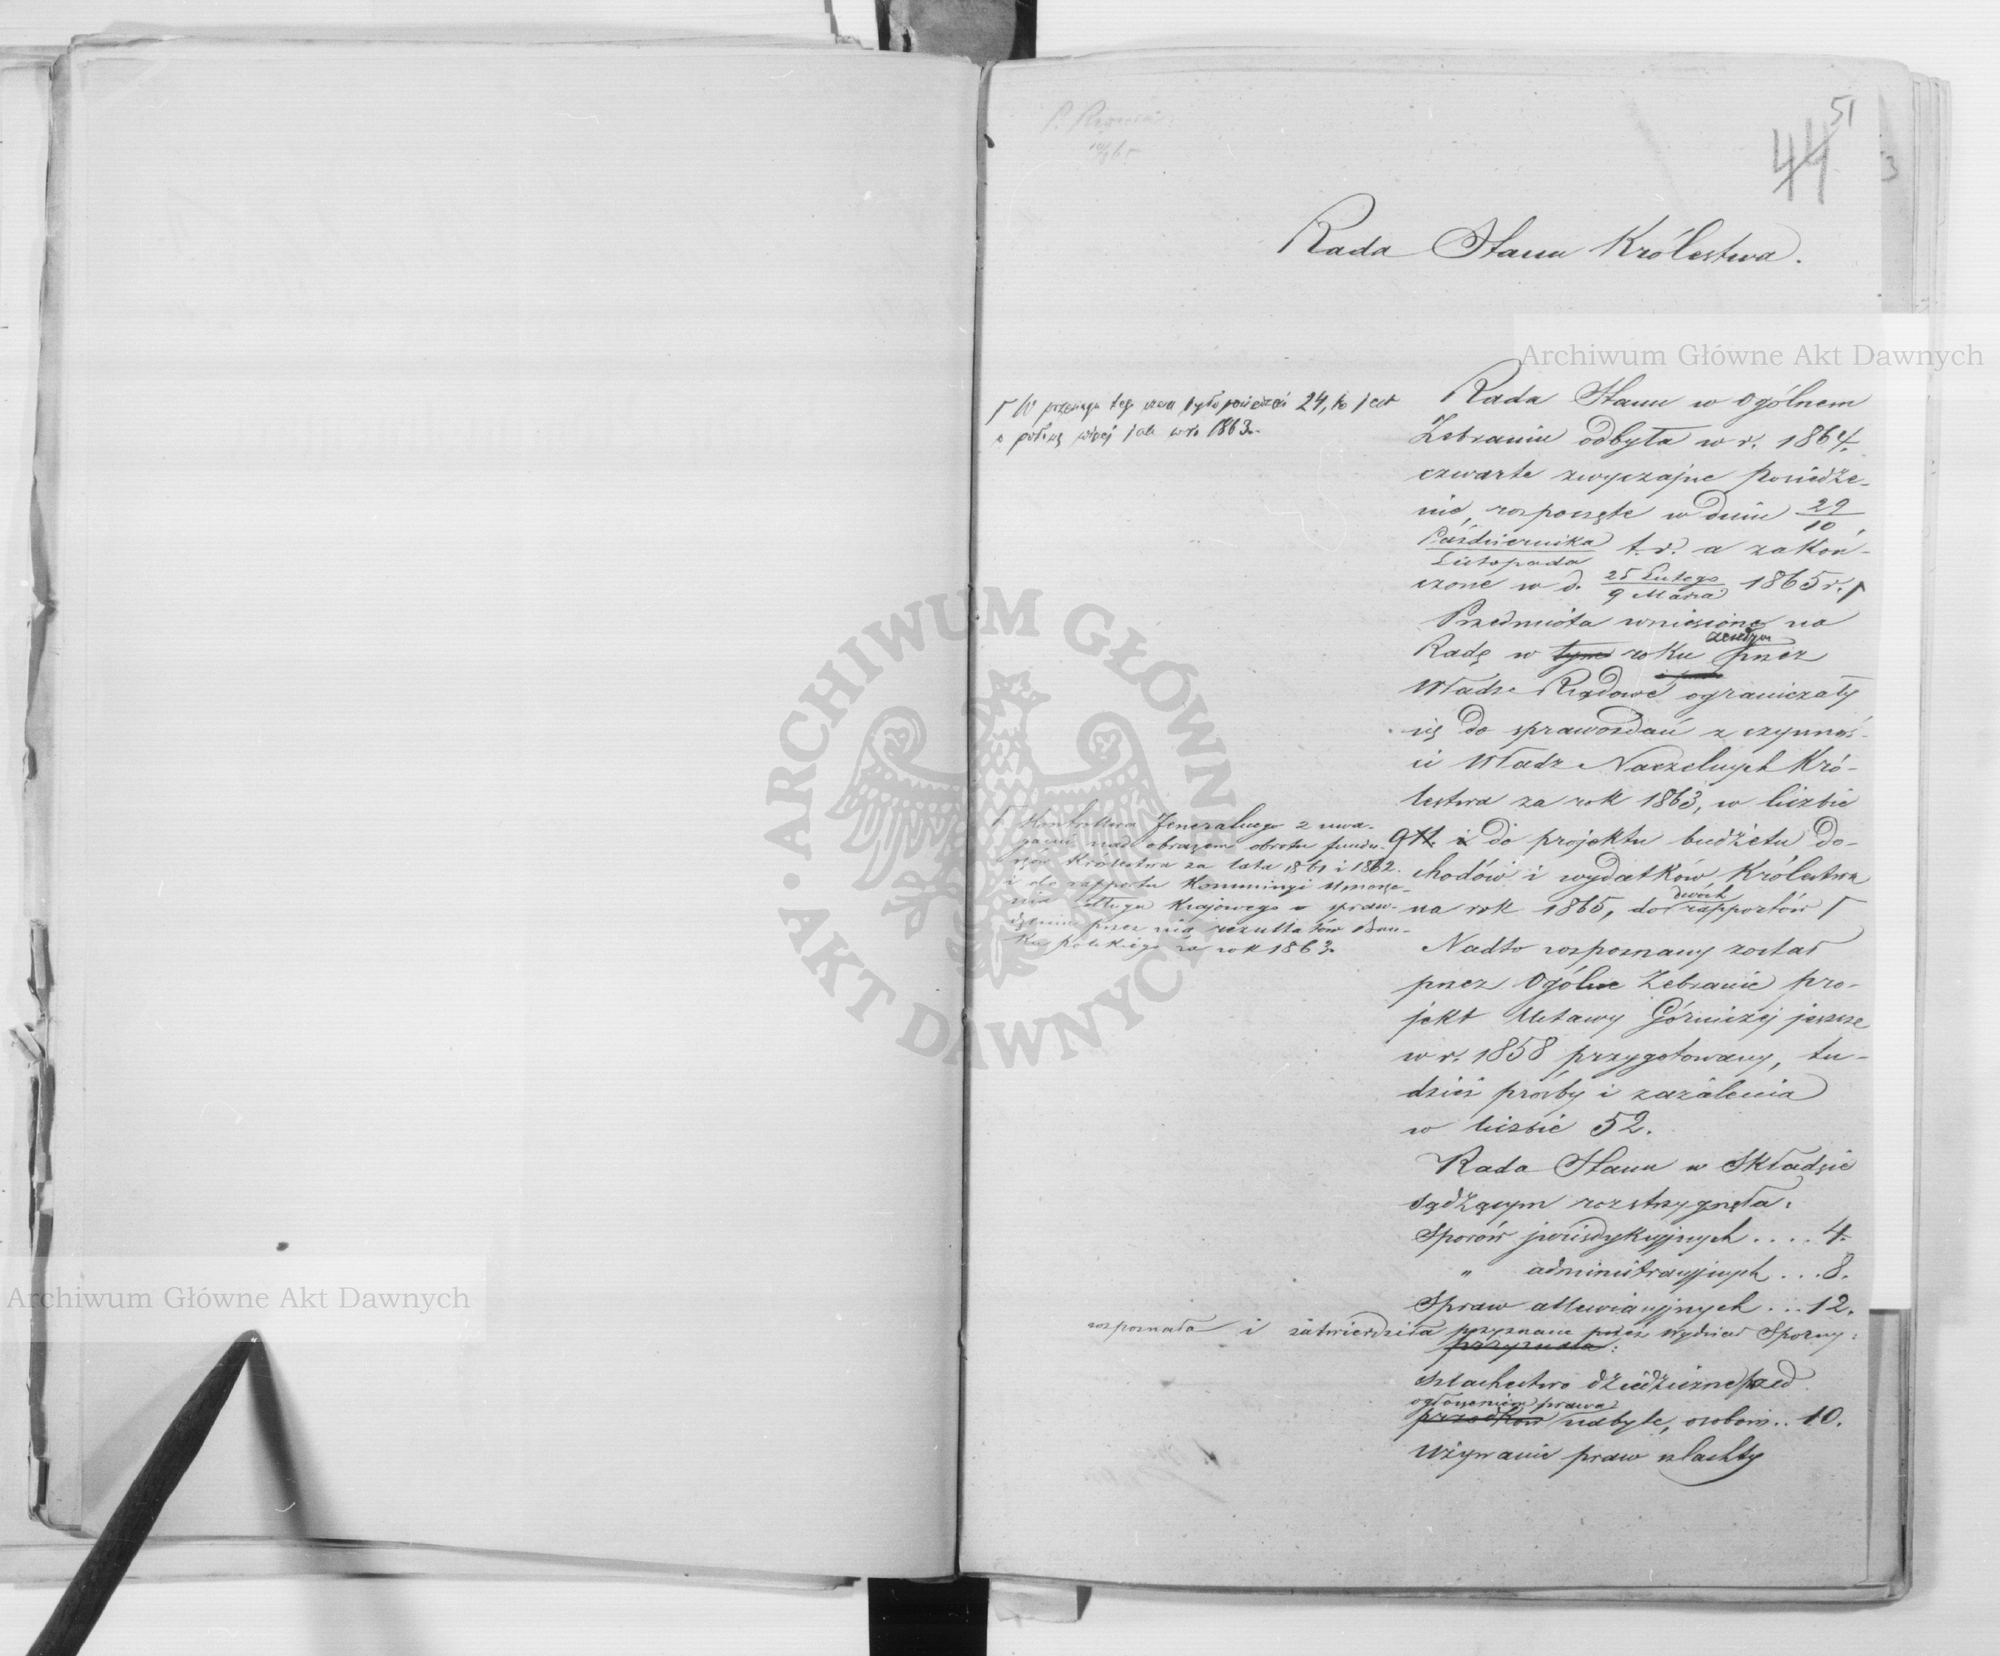 51
44
3
Rada Stanu Królestwa.
Archiwum Główne Akt Dawnych
Rada Stanu w Ogólnem
Zebraniu odbyła w r. 1864.
czwarte zwyczajne posiedze-
nie, rozpoczęte w dniu 29/10
Października/Listopada t.r. a zakoń-
czone w d. 25 Lutego/9 Marca 1865 r. Γ
Γ W przeciągu tego czasu było posiedzeń 24, to jest
o połowę więcej jak w r. 1863.
Przedmiota wniesione na
Radę w tym roku przez
Władze Rządowe ograniczały
się do sprawozdań z czynnoś-
ci Władz Naczelnych Kró-
lestwa za rok 1863, w liczbie
9 i do projektu budżetu do-
chodów i wydatków Królestwa
na rok 1865, do dwóch rapportów Γ
Γ Kontrollera Jeneralnego z uwa-
gami nad obrazem obrotu fundu-
szów Królestwa za lata 1861 i 1862
i do rapportu Kommissyi Umorze-
nia długu Krajowego o spraw-
dzeniu przez nią rezultatów Ban-
ku polskiego za rok 1863.
Nadto rozpoznany został
przez Ogólne Zebranie pro-
jekt Ustawy Górniczej jeszcze
w r. 1858 przygotowany, tu-
dzież prośby i zażalenia
w liczbie 52.
Rada Stanu w Składzie
Sądzącym rozstrzygnęła:
Sporów jurisdykcyjnych .... 4.
" administracyjnych ... 8.
Spraw alluwiacyjnych ... 12.
rozpoznała i zatwierdziła przyznane przez Wydział Sporny:
przyznała:
Szlachectwo dziedziczne przed
ogłoszeniem prawa
przodków nabyte, osobom .. 10.
Używanie praw szlachty
Archiwum Główne Akt Dawnych
ARCHIWUM GŁÓWNE AKT DAWNYCH